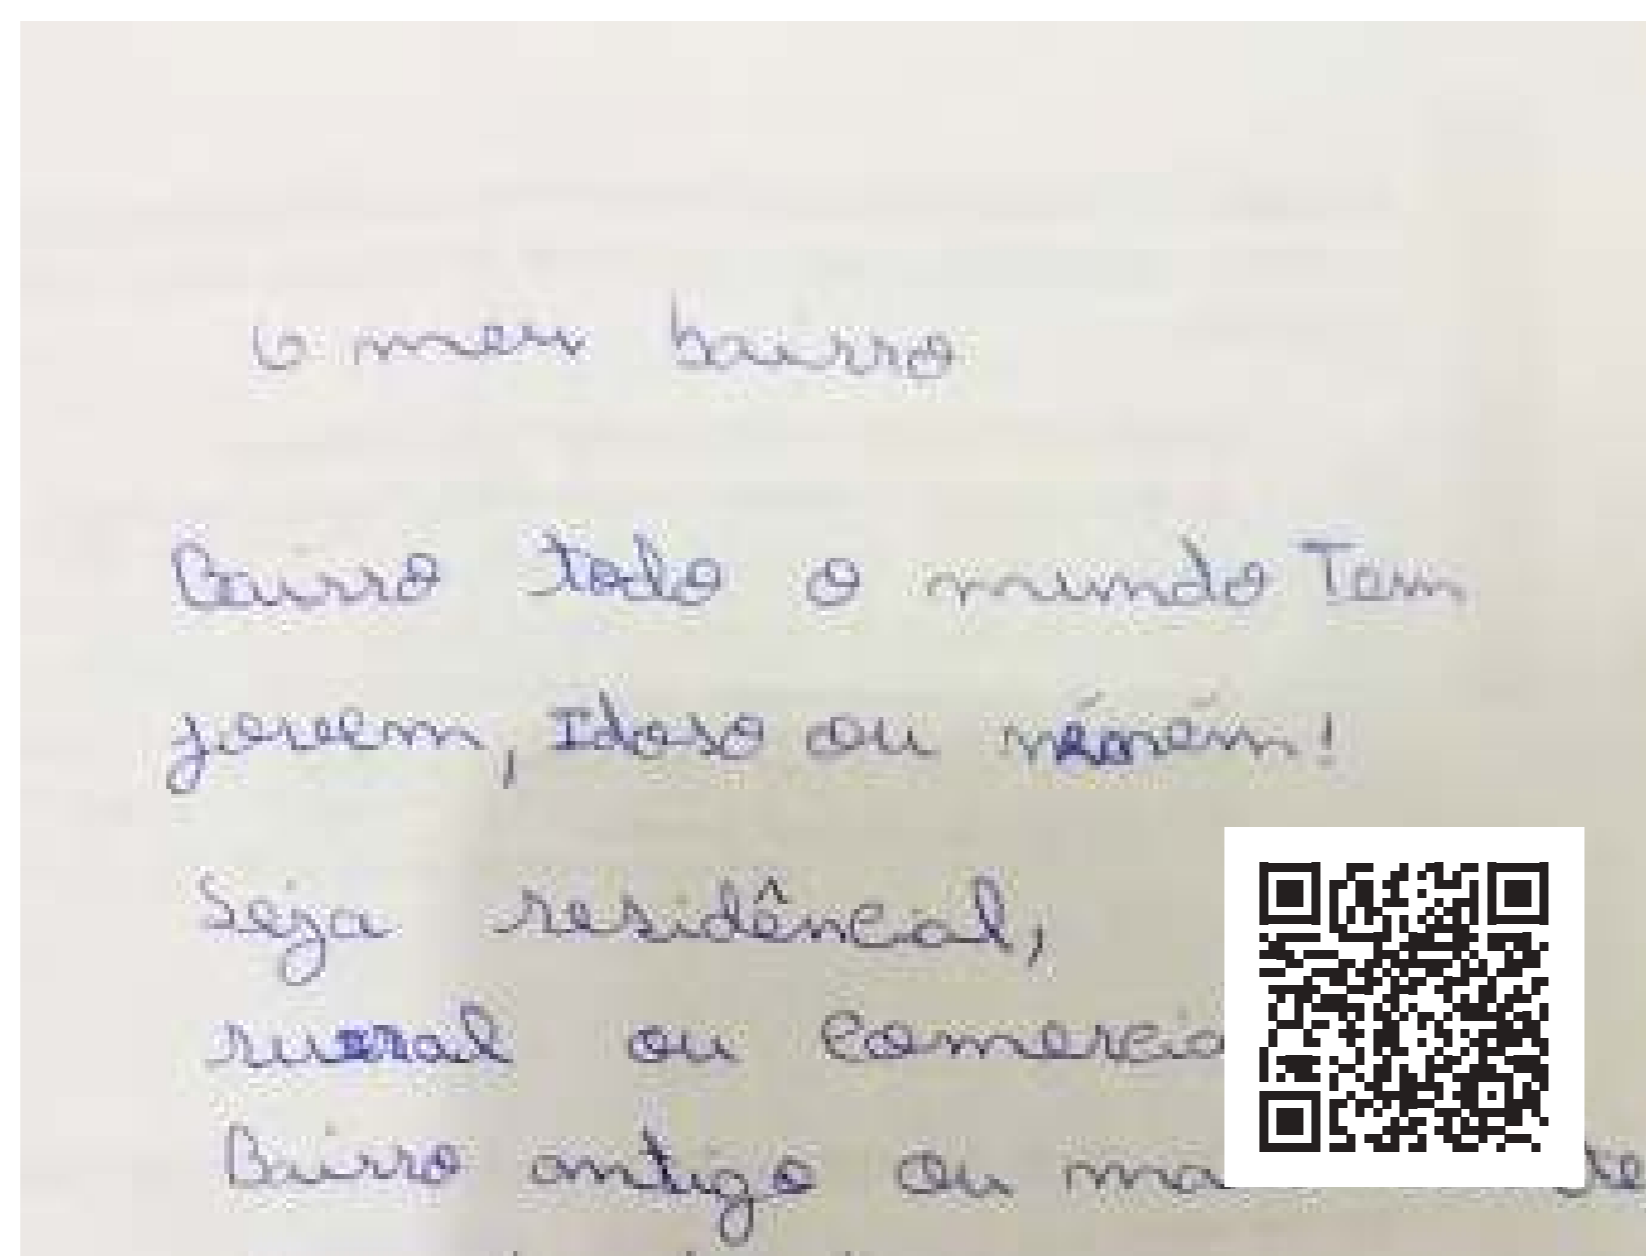 O meu bairro
Bairro todo o mundo Tem
jovem, Idoso ou neném!
Seja residêncial,
rural ou comercia
Bairro antigo ou ma